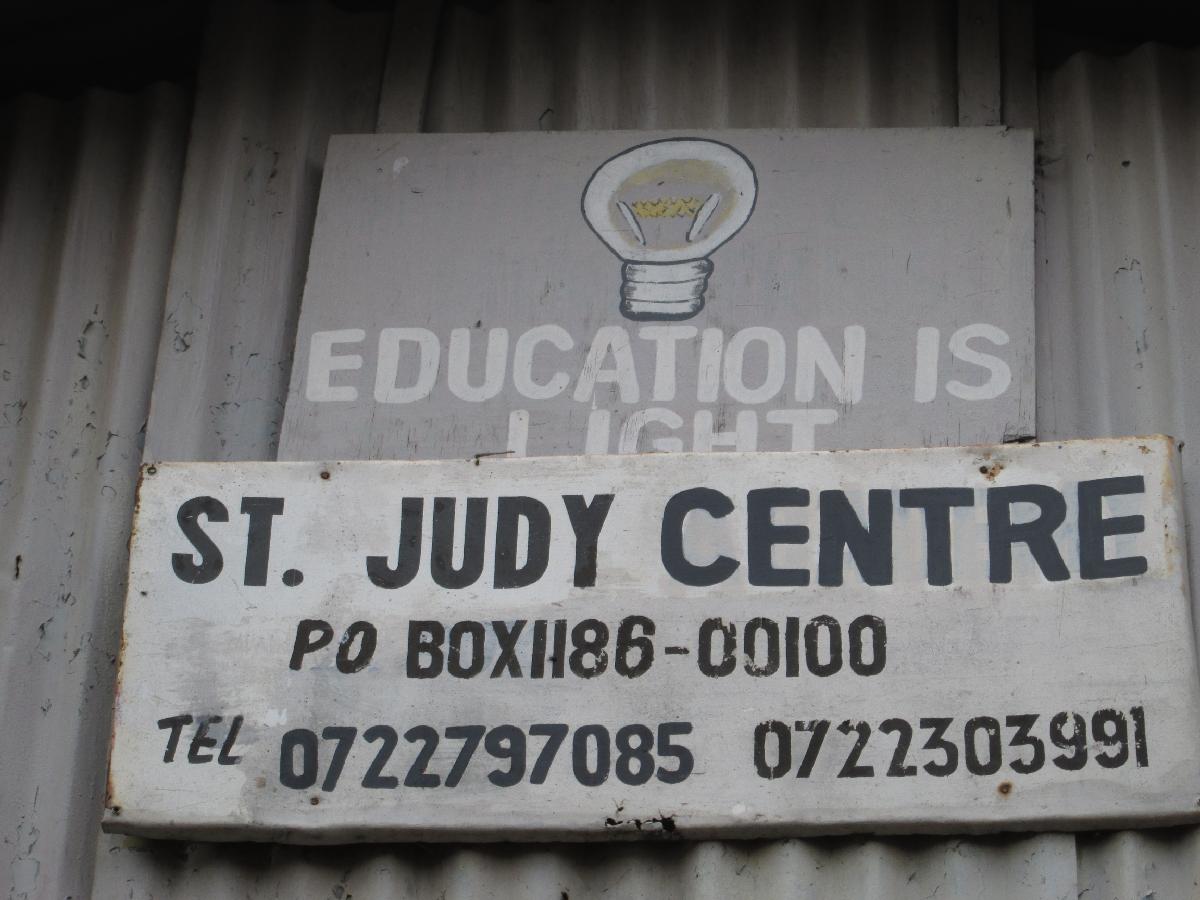 EDUCATION IS
LIGHT
ST. JUDY CENTRE
PO BOX1186-00100
TEL 0722797085 0722303991